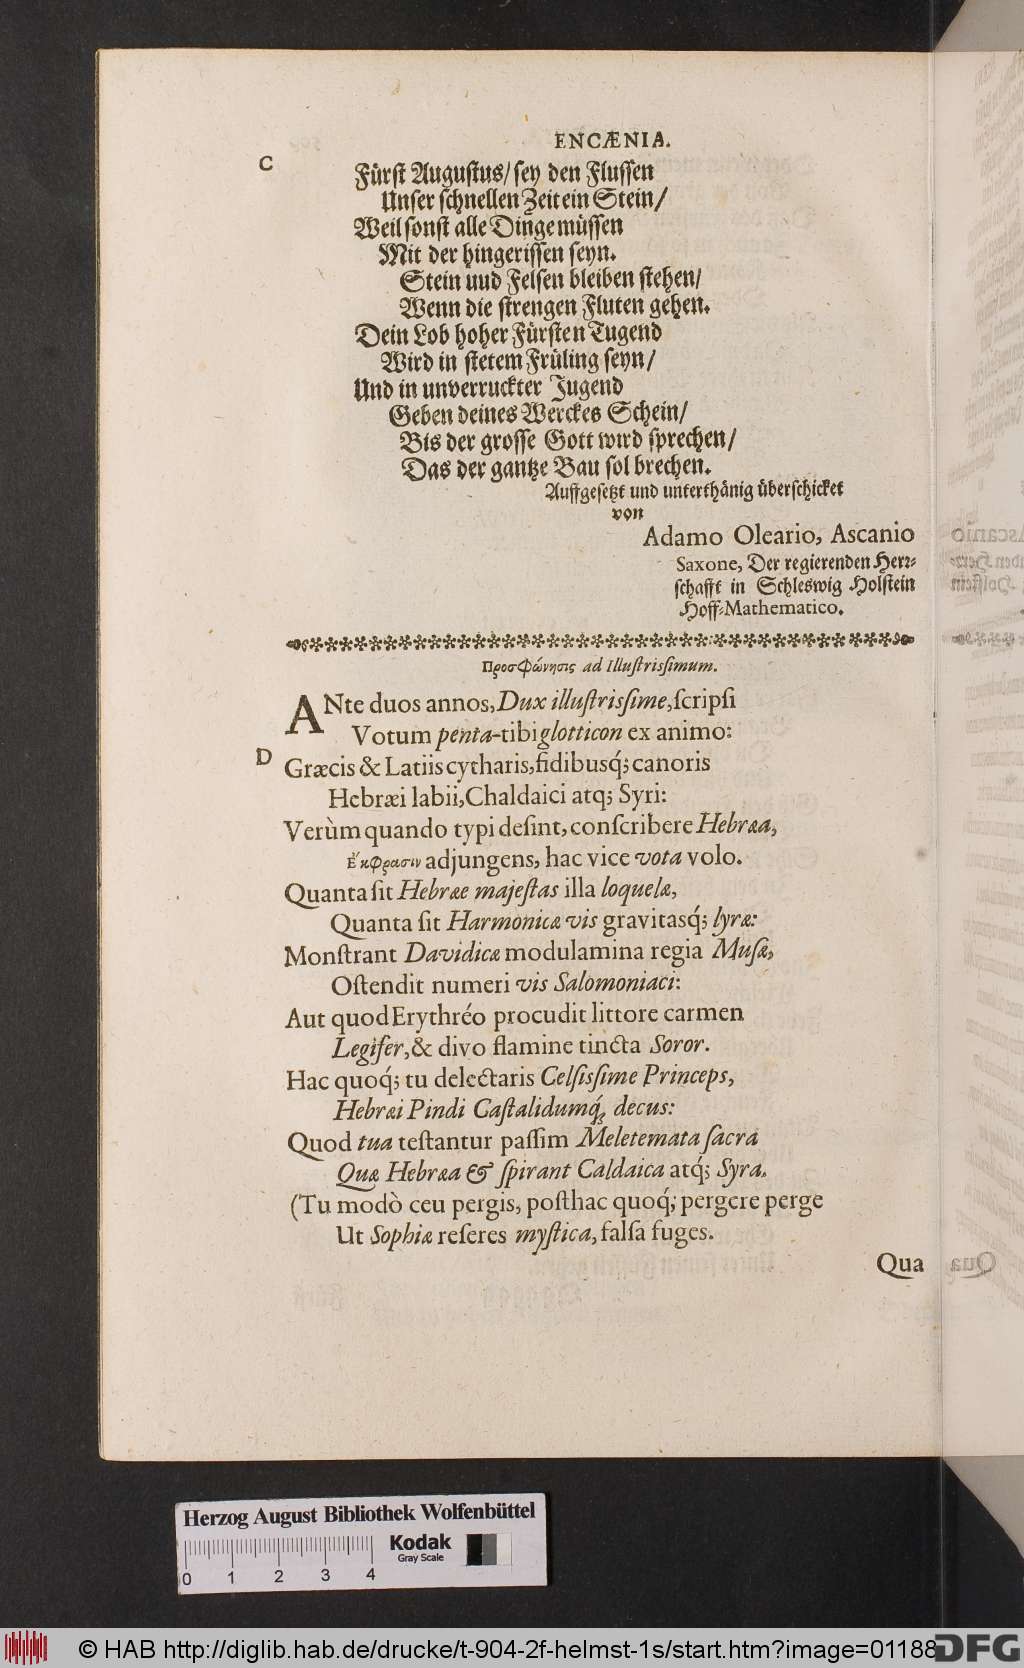 ENCÆNIA.
C
Fürst Augustus/ sey den Flussen
Unser schnellen Zeit ein Stein/
Weil sonst alle Dinge müssen
Mit der hingerissen seyn.
Stein uud Felsen bleiben stehen/
Wenn die strengen Fluten gehen.
Dein Lob hoher Fürsten Tugend
Wird in stetem Früling seyn/
Und in unverruckter Jugend
Geben deines Werckes Schein/
Bis der grosse Gott wird sprechen/
Das der gantze Bau sol brechen.
Auffgesetzt und unterthänig überschicket
von
Adamo Oleario, Ascanio
Saxone, Der regierenden Herr-
schafft in Schleswig Holstein
Hoff-Mathematico.
Προσφώνησις ad Illuſtrisſimum.
ANte duos annos, Dux illuſtrisſime, ſcripſi
Votum penta-tibiglotticon ex animo:
D
Græcis & Latiis cytharis, fidibusq́; canoris
Hebræi labii, Chaldaici atq; Syri:
Verùm quando typi deſint, conſcribere Hebræa,
Ἔκφρασιν adjungens, hac vice vota volo.
Quanta ſit Hebrææ majeſtas illa loquelæ,
Quanta ſit Harmonicæ vis gravitasq́; lyræ:
Monſtrant Davidicæ modulamina regia Muſæ,
Oſtendit numeri vis Salomoniaci:
Aut quod Erythréo procudit littore carmen
Legifer, & divo flamine tincta Soror.
Hac quoq́; tu delectaris Celſisſime Princeps,
Hebræi Pindi Caſtalidumq́; decus:
Quod tua teſtantur paſſim Meletemata ſacra
Quæ Hebræa & ſpirant Caldaica atq́; Syra.
(Tu modò ceu pergis, poſthac quoq́; pergere perge
Ut Sophiæ reſeres myſtica, falſa fuges.
Qua
Herzog August Bibliothek Wolfenbüttel
Kodak
Gray Scale
0 1 2 3 4
© HAB http://diglib.hab.de/drucke/t-904-2f-helmst-1s/start.htm?image=01188
DFG